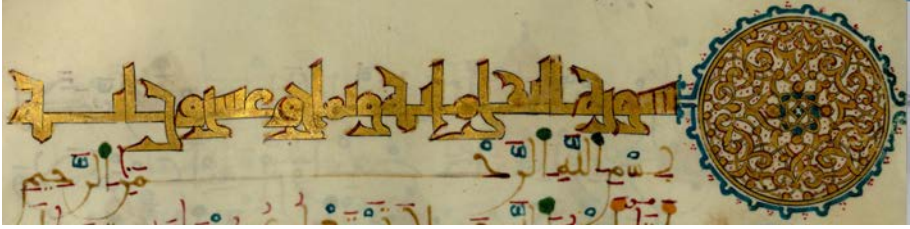 سورة النحل مائة وثمان وعشرون آية
بسم الله الرحمن الرحيم